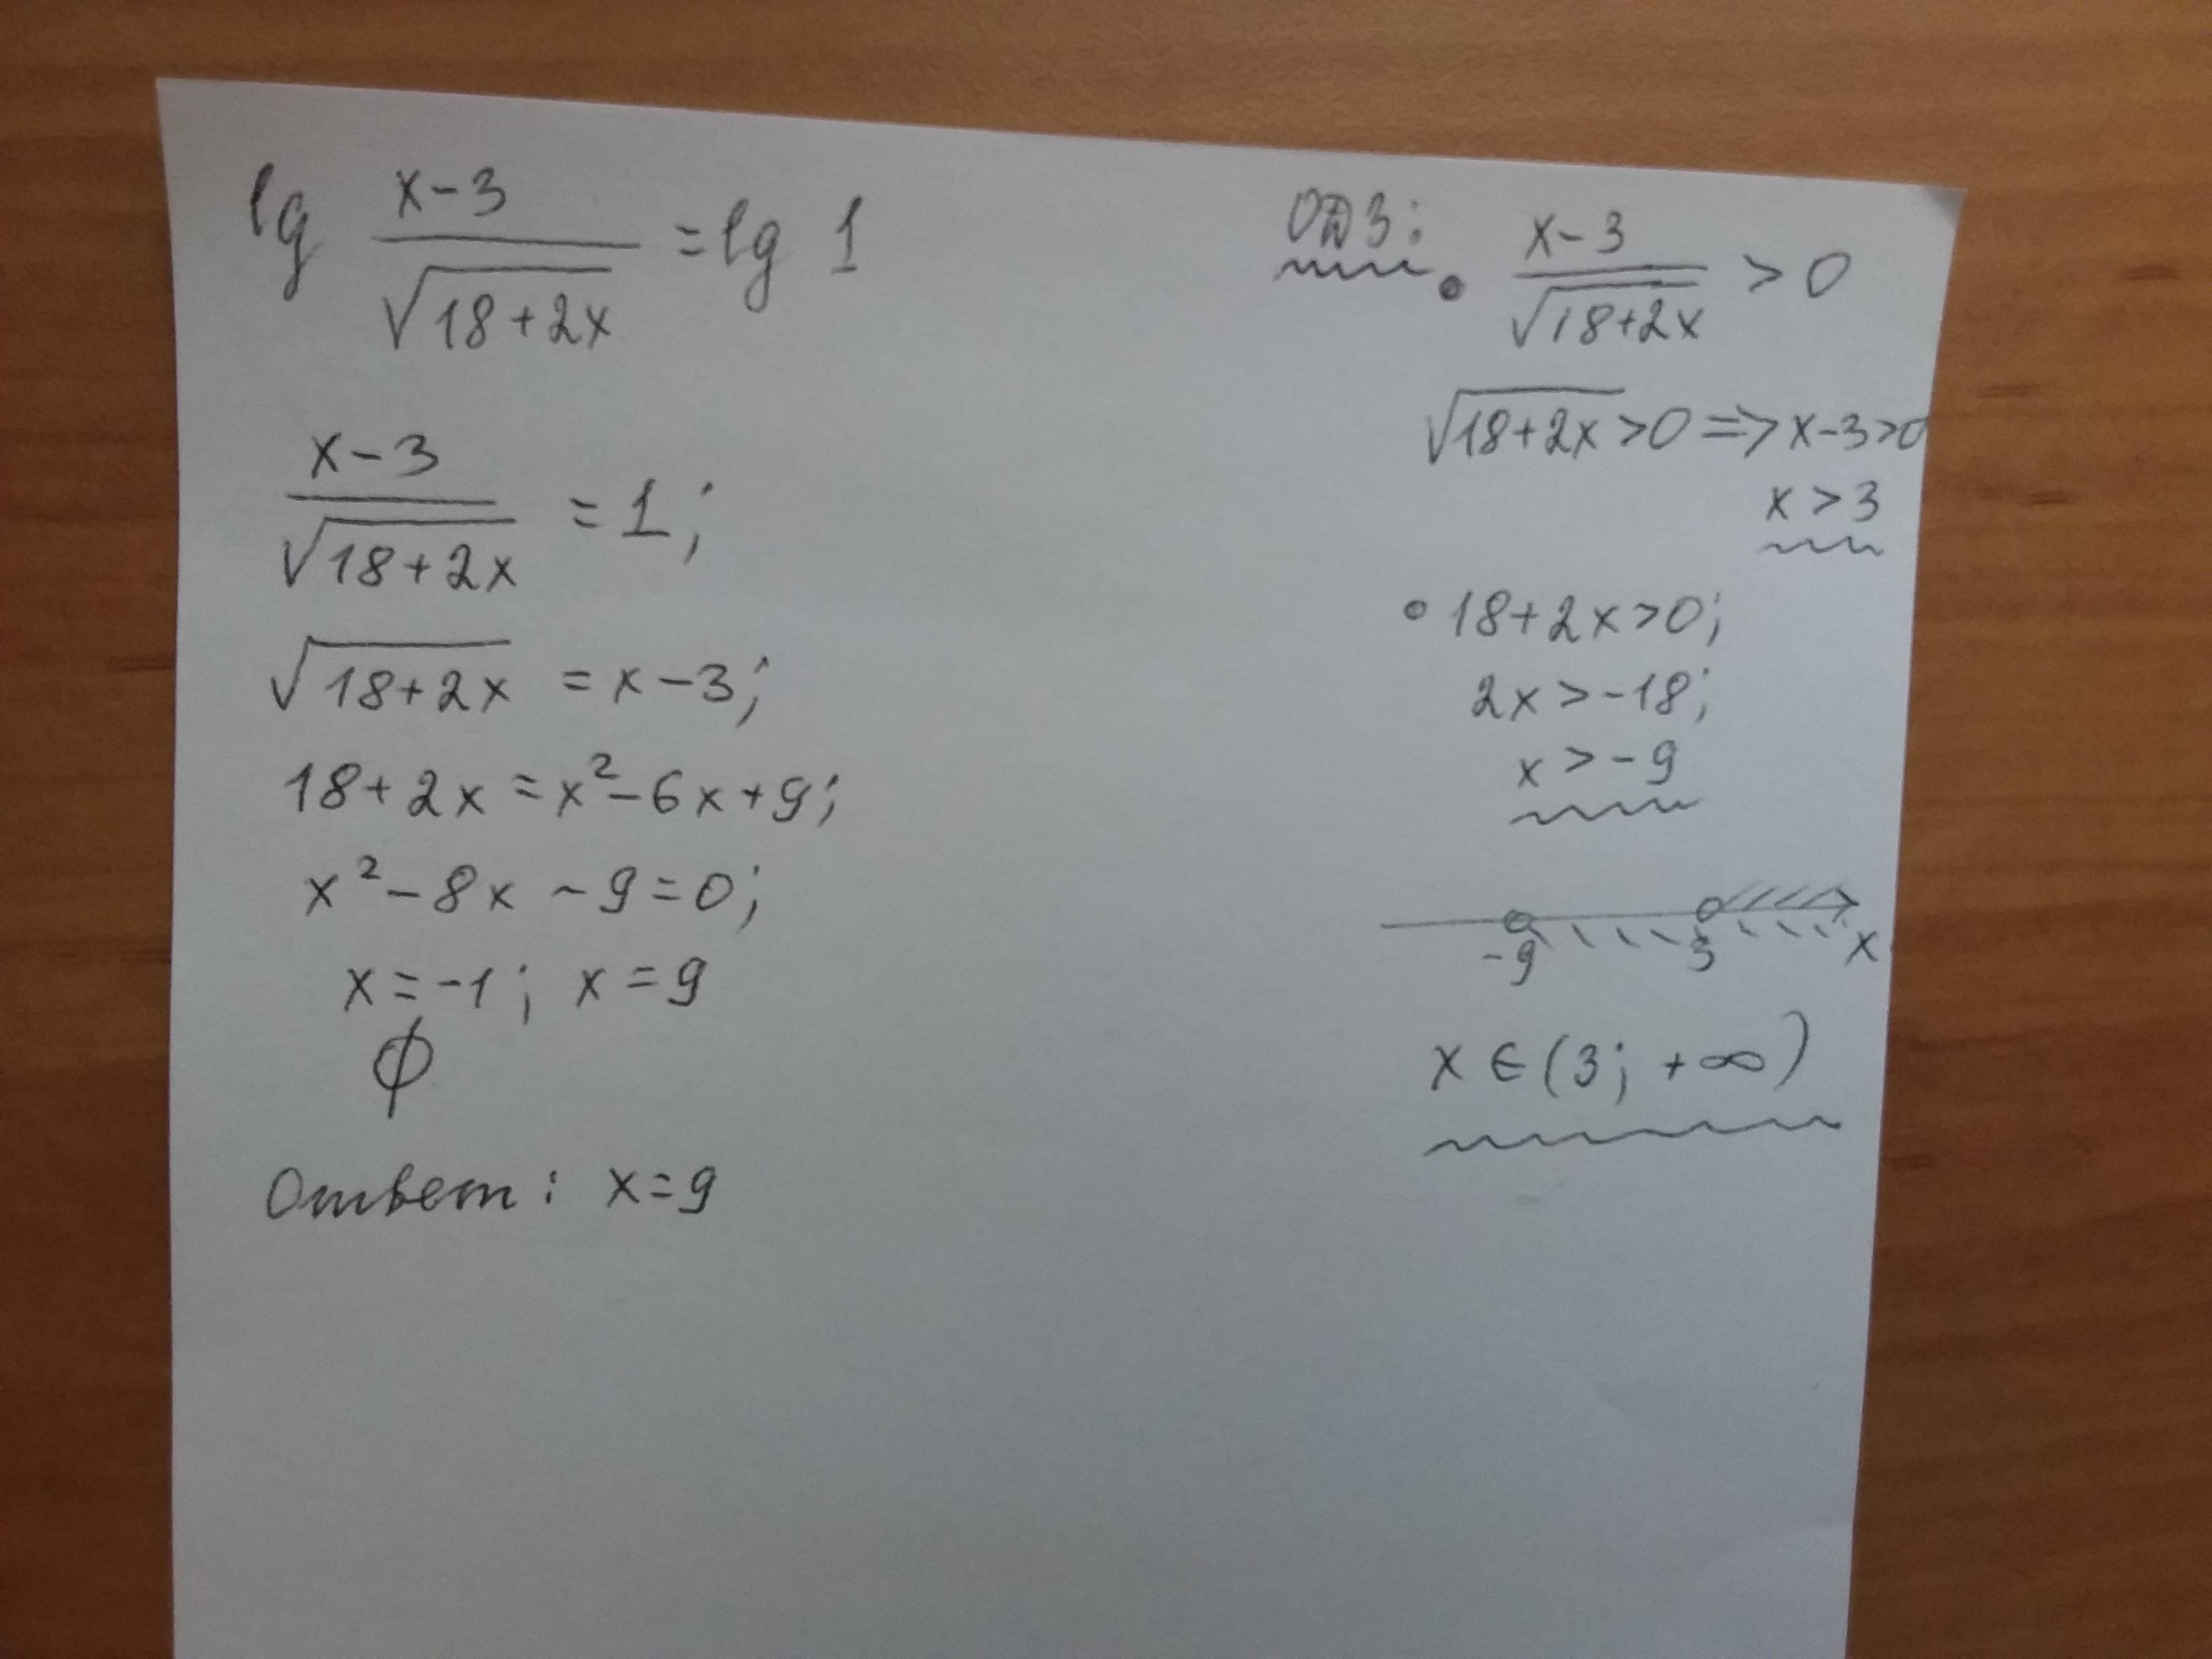 lg (x-3)/√(18+2x) = lg 1
(x-3)/√(18+2x) = 1;
√(18+2x) = x-3;
18+2x = x²-6x+9;
x²-8x-9=0;
x=-1; x=9
∅
Ответ: x=9
ОДЗ:
• (x-3)/√(18+2x) > 0
√(18+2x) >0 => x-3>0
x>3
• 18+2x>0;
2x>-18;
x>-9
-9 3 x
x∈(3; +∞)